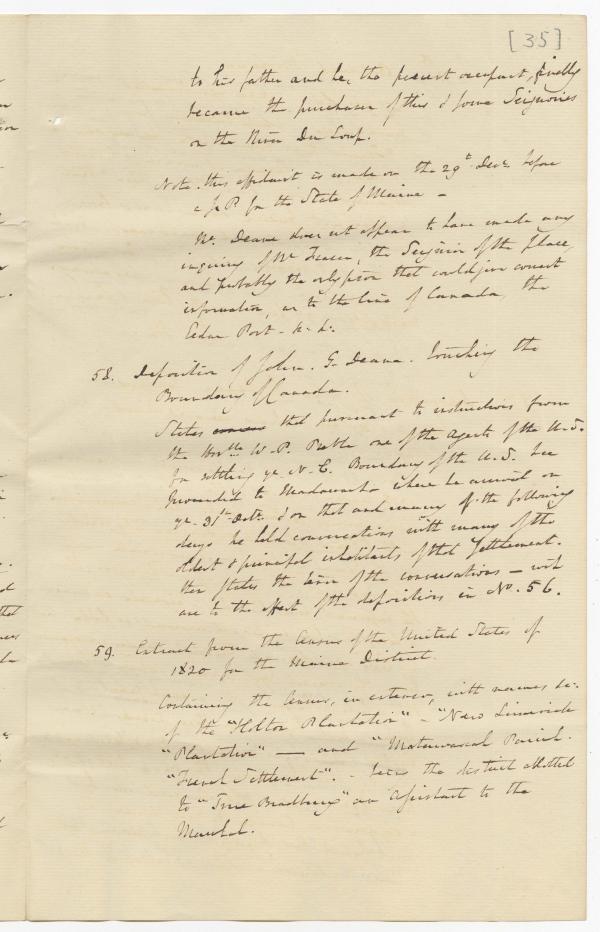 [35]
to his father and he, the present occupant, finally
became the purchaser of this & some Seignories
on the River Du Loup.
Note. this affidavit is made on the 29th Decr. before
a J.P. for the State of Maine -
Mr. Deane does not appear to have made any
inquiry of Mr Fraser, the Seignior of the place,
and probably the only person that could give correct
information, as to the line of Canada, the
Cedar Port - &c.
58. Deposition of John. G. Deane. touching the
Boundary of Canada.
States that pursuant to instructions from
the Honble W. P. Preble one of the Agents of the U.S.
for settling ye N.E. Boundary of the U.S. he
proceeded to Madawaska where he arrived on
ye. 31st Octr. & on that and many of the following
days he held conversations with many of the
oldest & principal inhabitants of that Settlement.
then states the tenor of the conversations - wch
are to the effect of the depositions in No. 56.
59. Extract from the Census of the United States of
1820 for the Maine District.
Containing the Census, in extenso, with names &c.
of the "Holton Plantation" - "New Limerick
"Plantation" — and "Matawascah Parish.
"French Settlement". - being the district allotted
to "True Bradbury" an Assistant to the
Marshal.